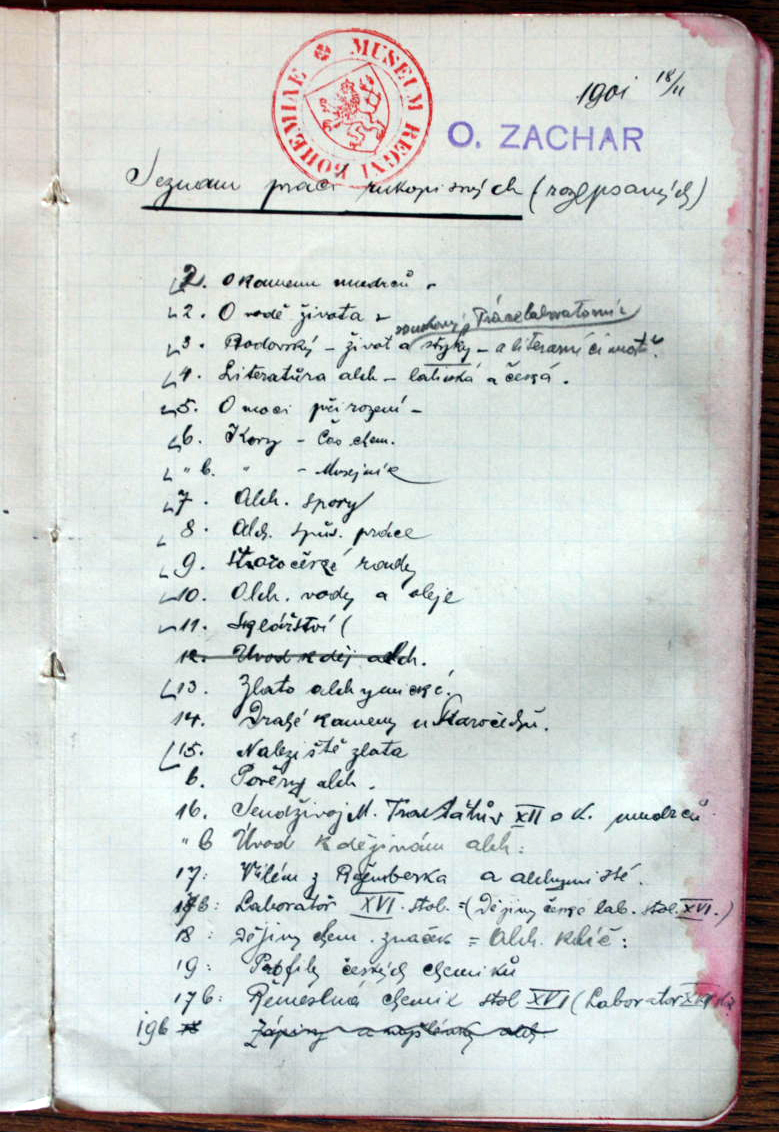 MUSEUM REGNI BOHEMIAE
1901 18/11
O. ZACHAR
Seznam prací rukopisných (rozepsaných)
2. O kamenu mudrců
2. O vodě života
Práce laboratorní
3. Rodovský - život a styky - a literární činnost
4. Literatura alch - latinská a česká.
5. O moci přirození -
6. Kovy - Čas chem.
" b. " - Musejník
7. Alch. spory
8. Alch. způs. práce
9. Staročeské
10. Alch. vody a oleje
11. Sklářství (
12. Úvod k děj alch.
13. Zlato alchymické.
14. Drahé kameny u Staročechů.
15. Naleziště zlata
b. Pověry alch.
16. Sendživoj M. Traktátův XII o k. mudrců
" b Úvod k dějinám alch:
17: Vilém z Rožmberka a alchymisté.
17b: Laboratoř XVI. stol. = (Dějiny české lab. stol. XVI.)
18: Dějiny chem. značek = Alch. klíč:
19: Profily českých chemiků
17b: Řemeslná chemie stol XVI (Laborator XVI
19b Zápisy a alch.